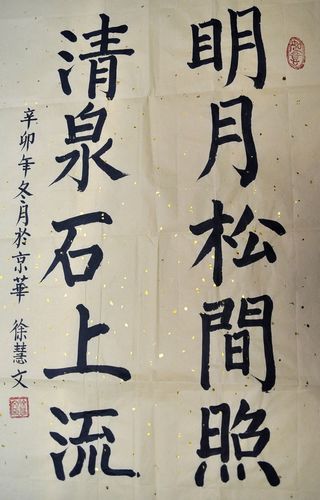 明月松間照
清泉石上流
辛卯年冬月於京華 徐慧文